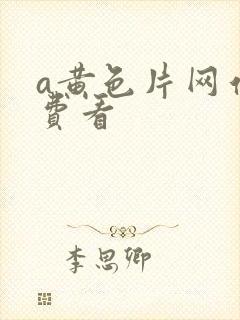 a黄色片网亻
費看
李思卿